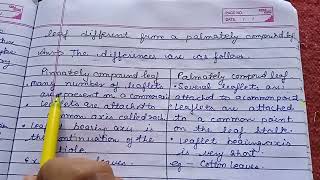 PAGE NO.
DATE
leaf different from a palmately compound leaf
Ans → The differences are as follows.
Pinnately compound leaf
Palmately compound leaf
• many number of leaflets
are present on a common
• leaflets are attached to
common axis called
• leaflet bearing axis is
the continuation of the
• Several leaflets are
attached to a common point
• leaflets are attached
to a common point
on the leaf stalk.
• leaflet bearing axis
is very short.
leaves
eg - Cotton leaves.